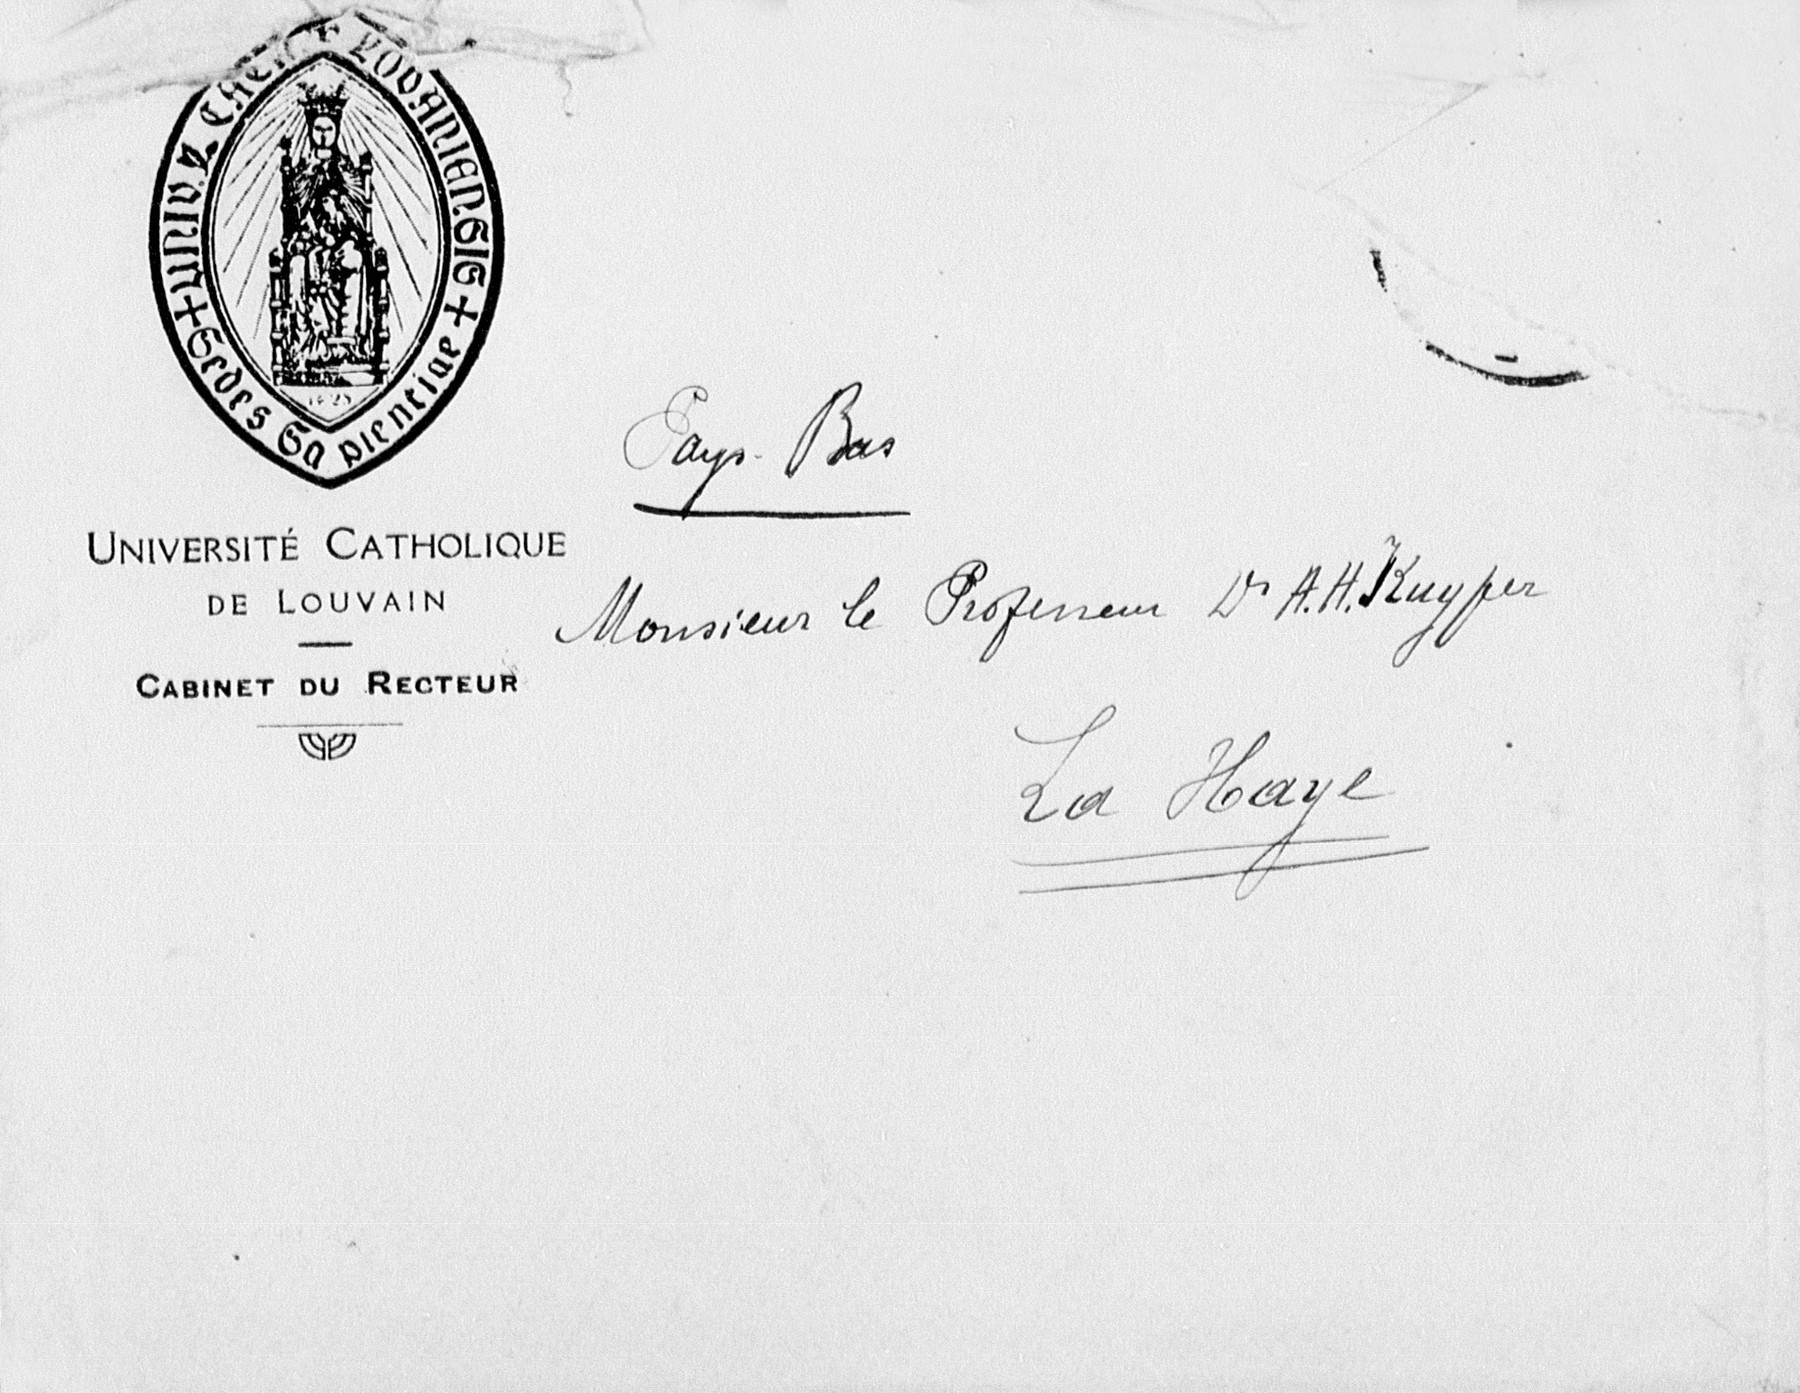 UNIV. CATH. LOVANIENSIS
Sedes Sapientiae
UNIVERSITÉ CATHOLIQUE
DE LOUVAIN
CABINET DU RECTEUR
Pays-Bas
Monsieur le Professeur Dr A.H. Kuyper
La Haye